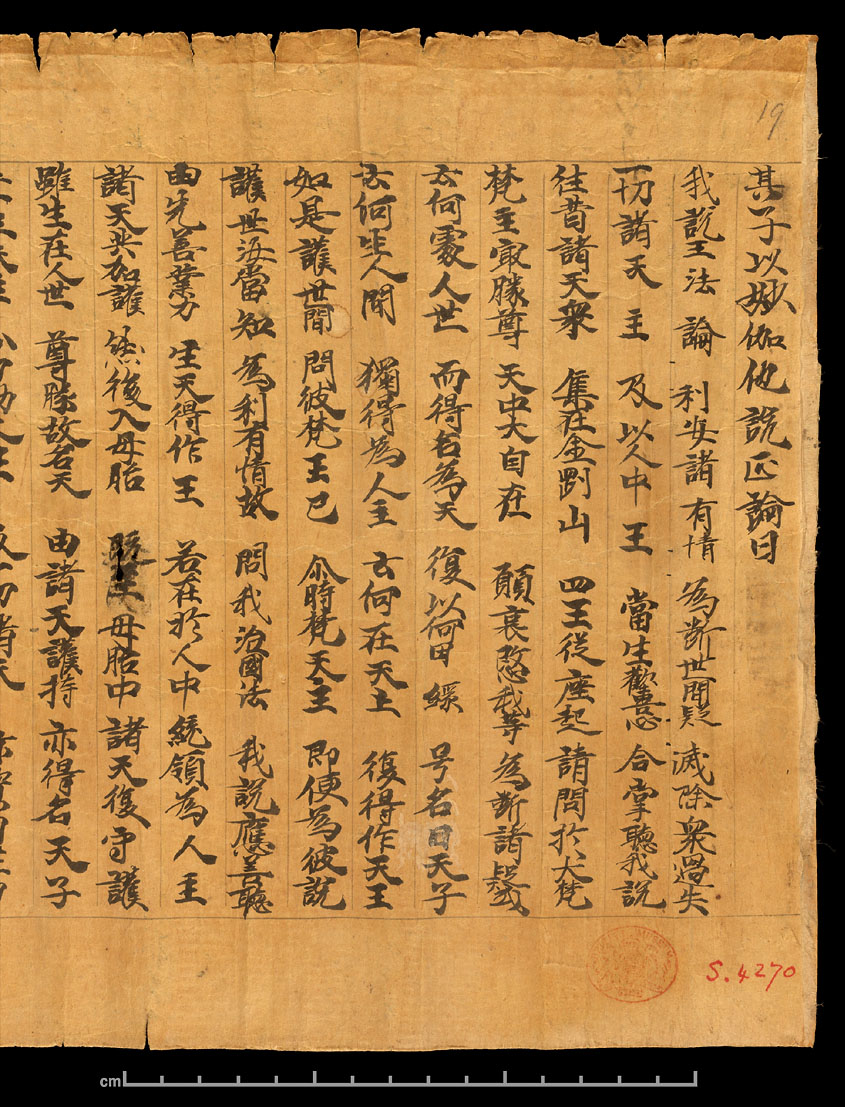 19
其子以妙伽他說正論曰
我說王法論 利安諸有情 為斷世間疑 滅除衆過失
一切諸天主 及以人中王 當生歡喜心 合掌聽我說
往昔諸天衆 集在金剛山 四王從座起 請問於大梵
梵主㝡勝尊 天中大自在 願哀愍我等 為斷諸疑惑
云何處人世 而得名為天 復以何因緣 号名曰天子
云何生人間 獨得為人主 云何在天上 復得作天王
如是護世間 問彼梵王已 尒時梵天主 即便為彼說
護世汝當知 為利有情故 問我治國法 我說應善聽
由先善業力 生天得作王 若在於人中 統領為人主
諸天共加護 然後入母胎 既至母胎中 諸天復守護
雖生在人世 尊勝故名天 由諸天護持 亦得名天子
S.4270
cm